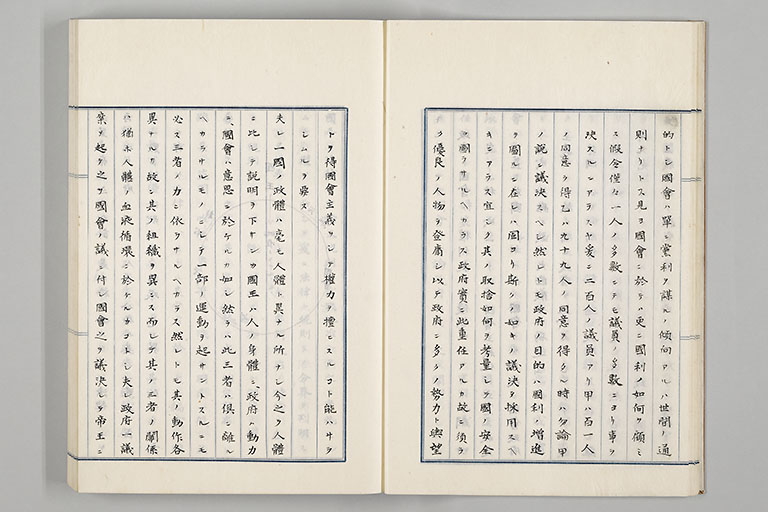 的トシ國會ハ單ニ黨利ヲ謀ルノ傾向アルハ世間ノ通
則ナリトス見ヨ國會ニ於テハ更ニ國利ノ如何ヲ顧ミ
ス假令僅々一人ノ多數ニテモ議員ノ多數ニヨリ事ヲ
決スルニアラスヤ爰ニ二百人ノ議員アリ甲ハ百一人
ノ同意ヲ得乙ハ九十九人ノ同意ヲ得タル時ハ勿論甲
ノ説ニ議決スヘシ然レトモ政府ノ目的ハ國利ノ增進
ヲ圖ルニ在レハ固ヨリ斯クノ如キノ議決ヲ採用スヘ
キニアラス宜シク其ノ取捨如何ヲ考量シテ國ノ安全
ヲ圖ラサルヘカラス政府實ニ此重任アルカ故ニ須ラ
ク優良ノ人物ヲ登庸シ以テ政府ニ多々ノ勢力ト輿望
トヲ得國會主義ヲシテ權力ヲ擅ニスルコト能ハサラ
シムルヲ要ス
夫レ一國ノ政體ハ毫モ人體ト異ナル所ナシ今之ヲ人體
ニ比シテ説明ヲ下サンカ國王ハ人ノ身體ニ、政府ハ動力
ニ、國會ハ意思ニ於ケルカ如シ然ラハ此三者ハ倶ニ離ル
ヘカラサルモノニシテ一部ノ運動ヲ起サントスルニモ
必ス三者ノ力ニ依ラサルヘカラス然レトモ其ノ動作各
異ナルカ故ニ其ノ組織ヲ異ニス而シテ其ノ三者ノ關係
ハ猶ホ人體ノ血液循環ニ於ケルカコトシ夫レ政府一議
案ヲ起シ之ヲ國會ノ議ニ付シ國會之ヲ議決シテ帝王ニ